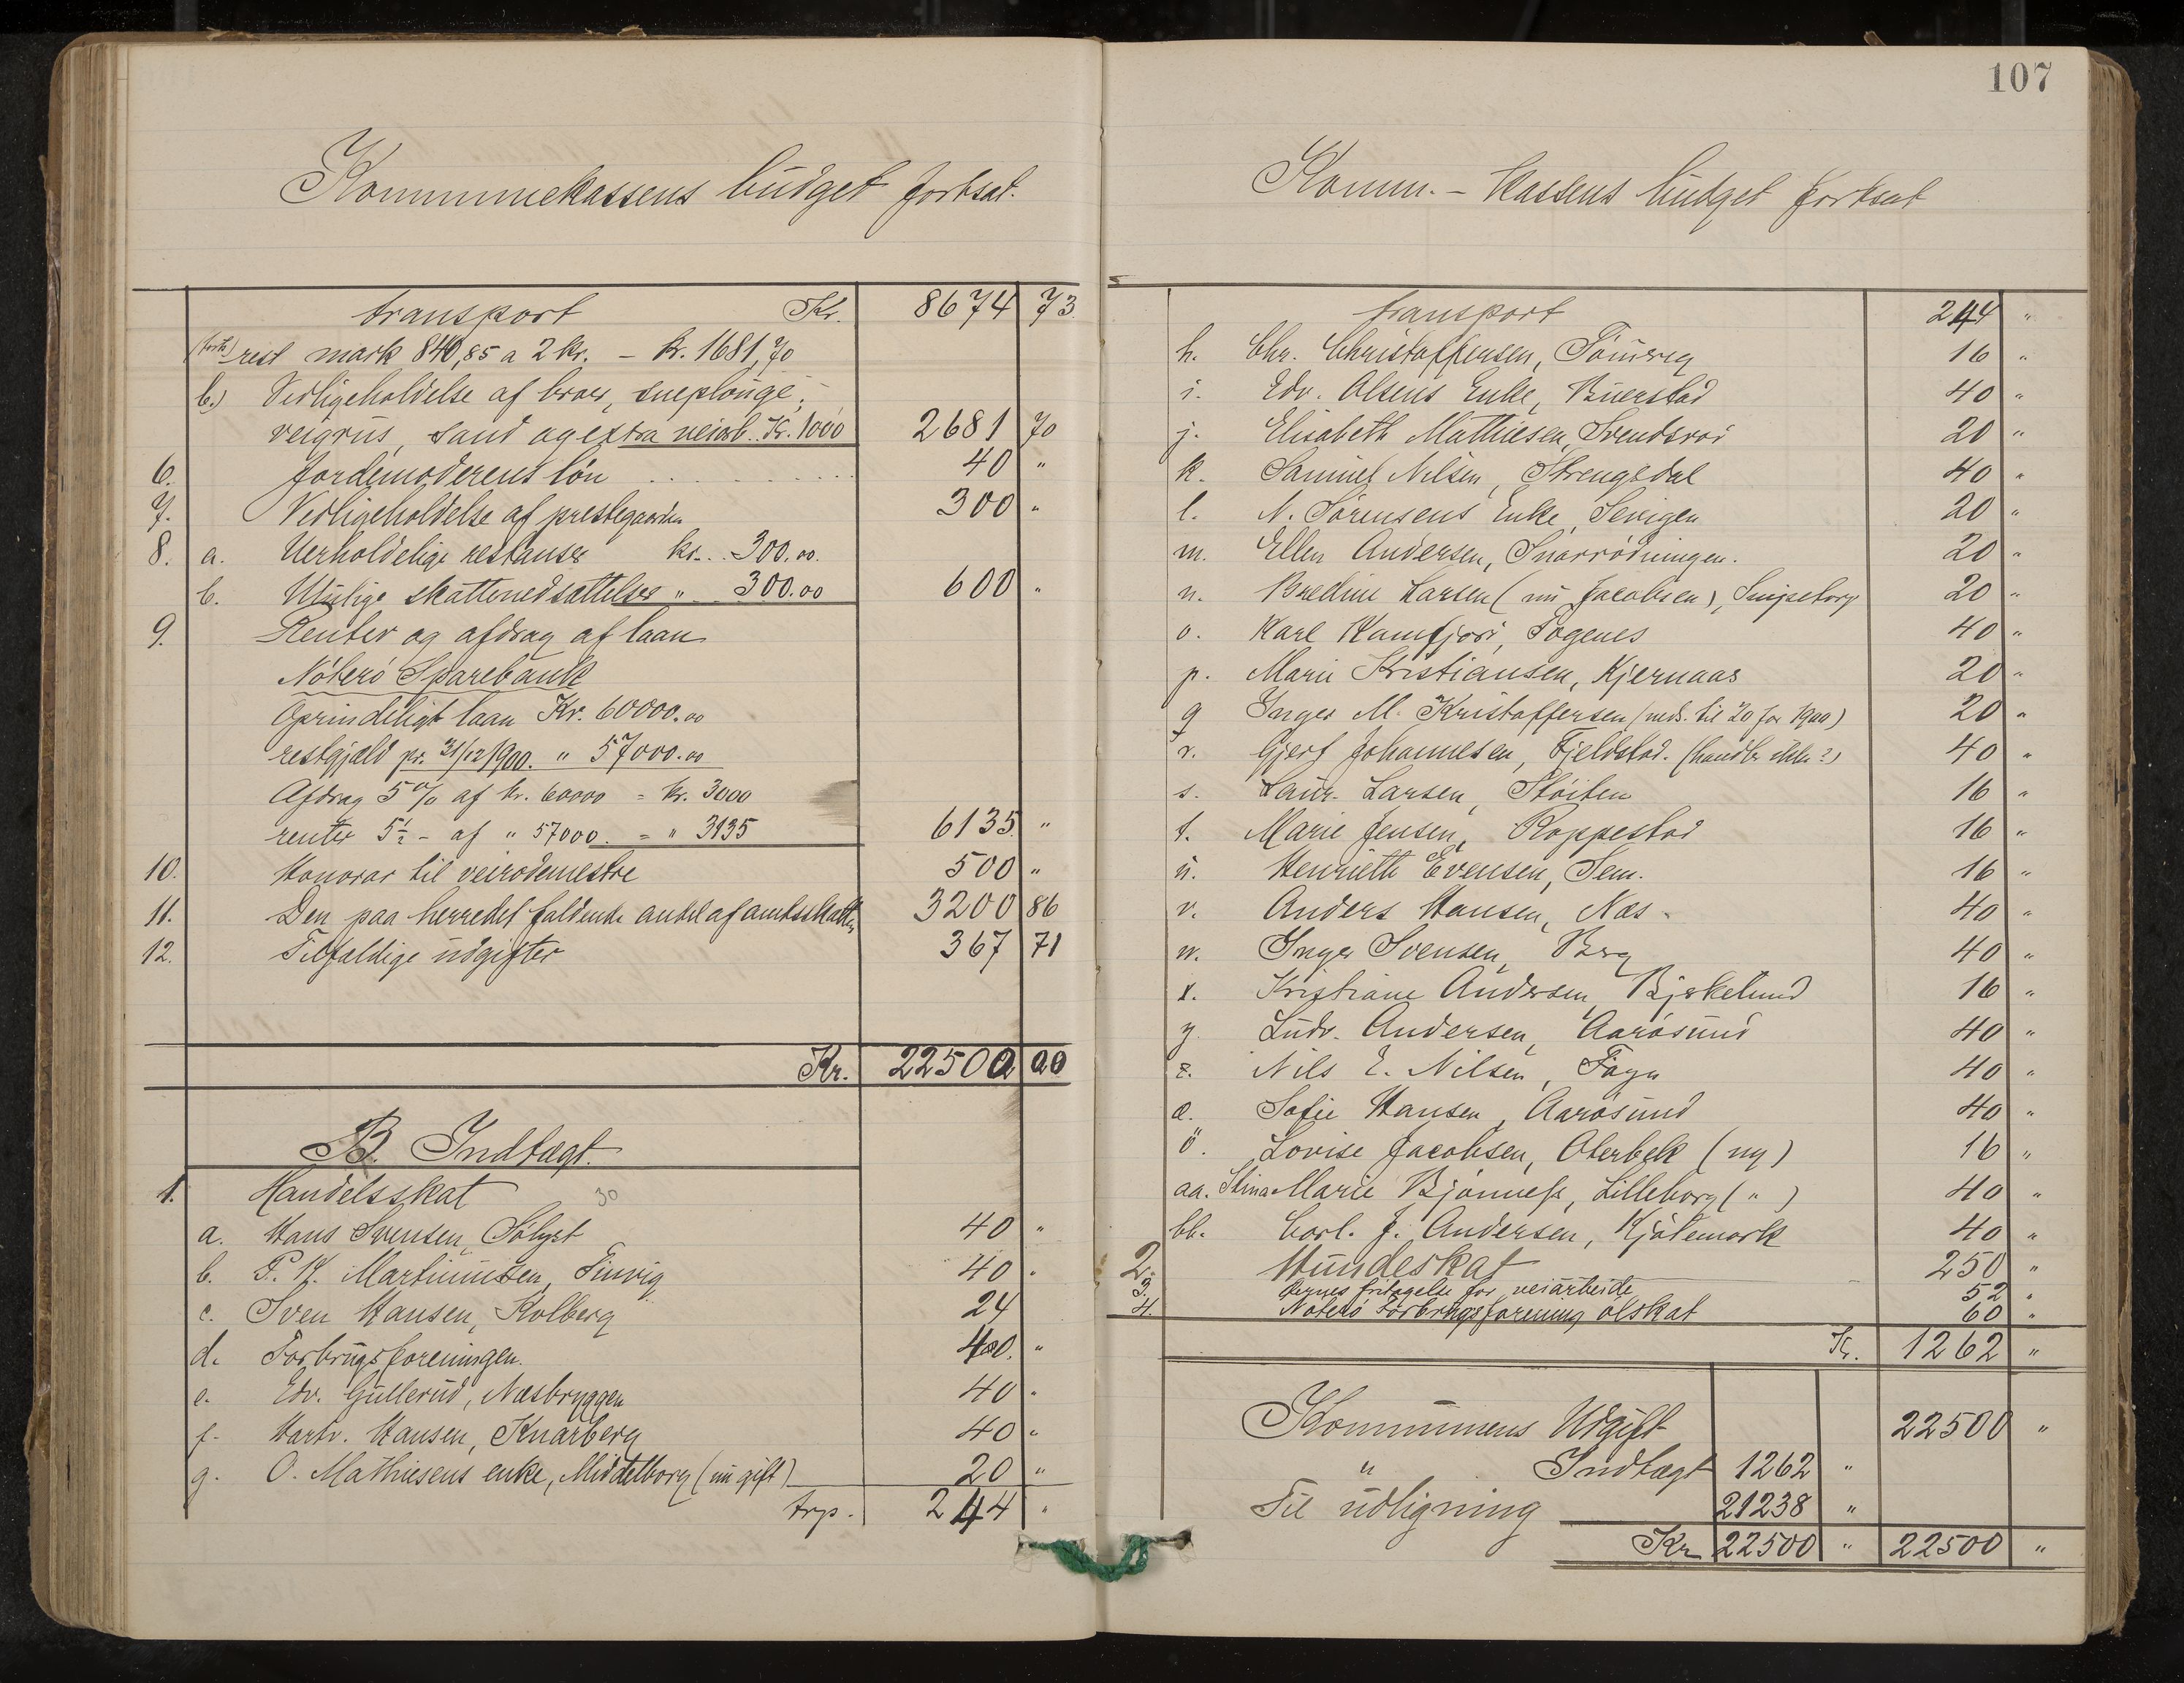 Kommunekassens budget fortsat.
transport Kr. 8674 73
(forts.) rest mark 840,85 a 2 kr. – kr. 1681,70
b.) Vedligeholdelse af broer, sneplouge,
veigrus, sand og extra veiarb. Kr. 1000 2681 70
6. Jordemoderens løn 40 "
7. Vedligeholdelse af prestegaarden 300 "
8. a. Uerholdelige restanser kr. 300.00.
b. Mulige skattenedsættelser " 300.00 600 "
9. Renter og afdrag af laan
Nøterø Sparebank
Oprindeligt laan Kr. 60000.00
restgjæld pr. 31/12/900. " 57000.00
Afdrag 5 % af kr. 60000 = kr. 3000
renter 5½ - af " 57000. = " 3135 6135 "
10. Honorar til veirodemestre 500 "
11. Den paa herredet faldende andel af amtsskatten 3200 86
12. Tilfældige udgifter 367 71
Kr. 22500 00
B. Indtægt.
1. Handelsskat 30
a. Hans Svensen, Solyst 40 "
b. P. H. Martinussen, Tinvig 40 "
c. Sven Hansen, Kolberg 24
d. Forbrugsforeningen. 40 "
e. Edv. Gullerud, Næsbryggen 40 "
f. Hartv. Hansen, Knarberg 40 "
g. O. Mathiesens enke, Middelborg (nu gift) 20 "
trp. 244 "
107
Komm. - kassens budget fortsat
transport 244 "
h. Chr. Christoffersen, Tømsvig 16 "
i. Edv. Olsens Enke, Buerstad 40 "
j. Elisabeth Mathiesen, Svendsrød 20 "
k. Samuel Nilsen, Strengsdal 40 "
l. N. Sørensens Enke, 20 "
m. Ellen Andersen, Snarrødningen. 20 "
n. Bredine Larsen (nu Jacobsen), 20 "
o. Karl Kamfjord, Togenes 40 "
p. Marie Kristiansen, Kjernaas 20 "
q Inger M. Kristoffersen (neds. til 20 for 1900) 20 "
r. Gjert Johannesen, Fjeldstad. (handler ikke?) 40 "
s. Laur. Larsen, Støiten 16 "
t. Marie Jensen, Roppestad 16 "
u. Henriette Evensen, Sem. 16 "
v. Anders Hansen, Næs. 40 "
w. Inger Svensen, Berg 40 "
x. Kristiane Andersen, Bjerkelund 16 "
y. Ludv. Andersen, Aarøsund 40 "
z. Nils E. Nilsen, Føyn 40 "
æ. Sofie Hansen, Aarøsund 40 "
ö. Lovise Jacobsen, Oterbæk (ny) 16 "
aa. Stina Marie Bjønness, Lilleborg ( " ) 40 "
bb. Carl. J. Andersen, Kjøtemark 40 "
2. Hundeskat 250 "
3. fritagelse for veiarbeide 52 "
4. Nøterø Forbrugsforening ølskat 60 "
Kr. 1262 "
Kommunens Udgift 22500 "
" Indtægt 1262 "
Til udligning 21238 "
Kr 22500 " 22500 "